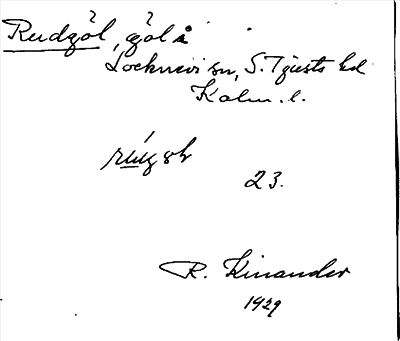 Rudgöl, göl
Locknevi sn, S. Tjusts hd
Kalm. l.
23.
R. Kinander
1929